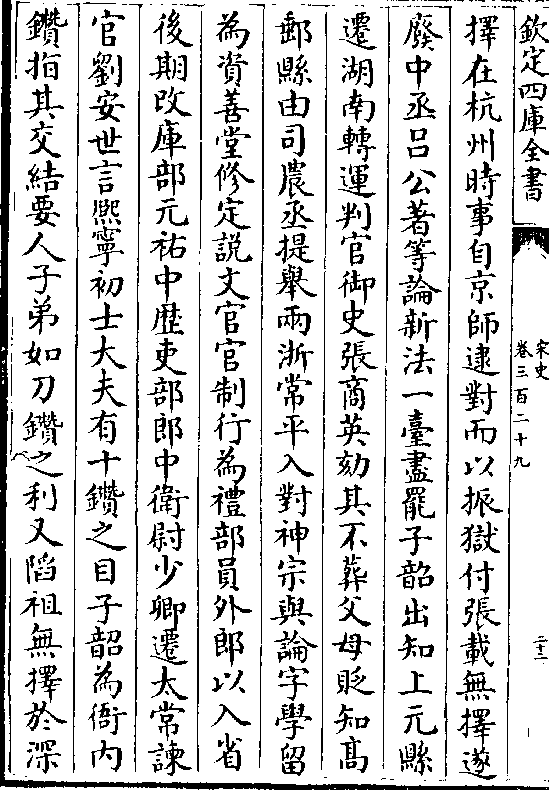 欽定四庫全書
宋史
卷三百二十九
二十一
擇在杭州時事自京師逮對而以振獄付張載無擇遂
廢中丞呂公著等論新法一臺盡罷子韶出知上元縣
遷湖南轉運判官御史張商英劾其不葬父母貶知髙
郵縣由司農丞提舉兩浙常平入對神宗與論字學留
為資善堂修定説文官官制行為禮部員外郎以入省
後期改庫部元祐中歴吏部郎中衛尉少卿遷太常諫
官劉安世言熙寧初士大夫有十鑽之目子韶為衙内
鑽指其交結要人子弟如刀鑽之利又䧟祖無擇於深